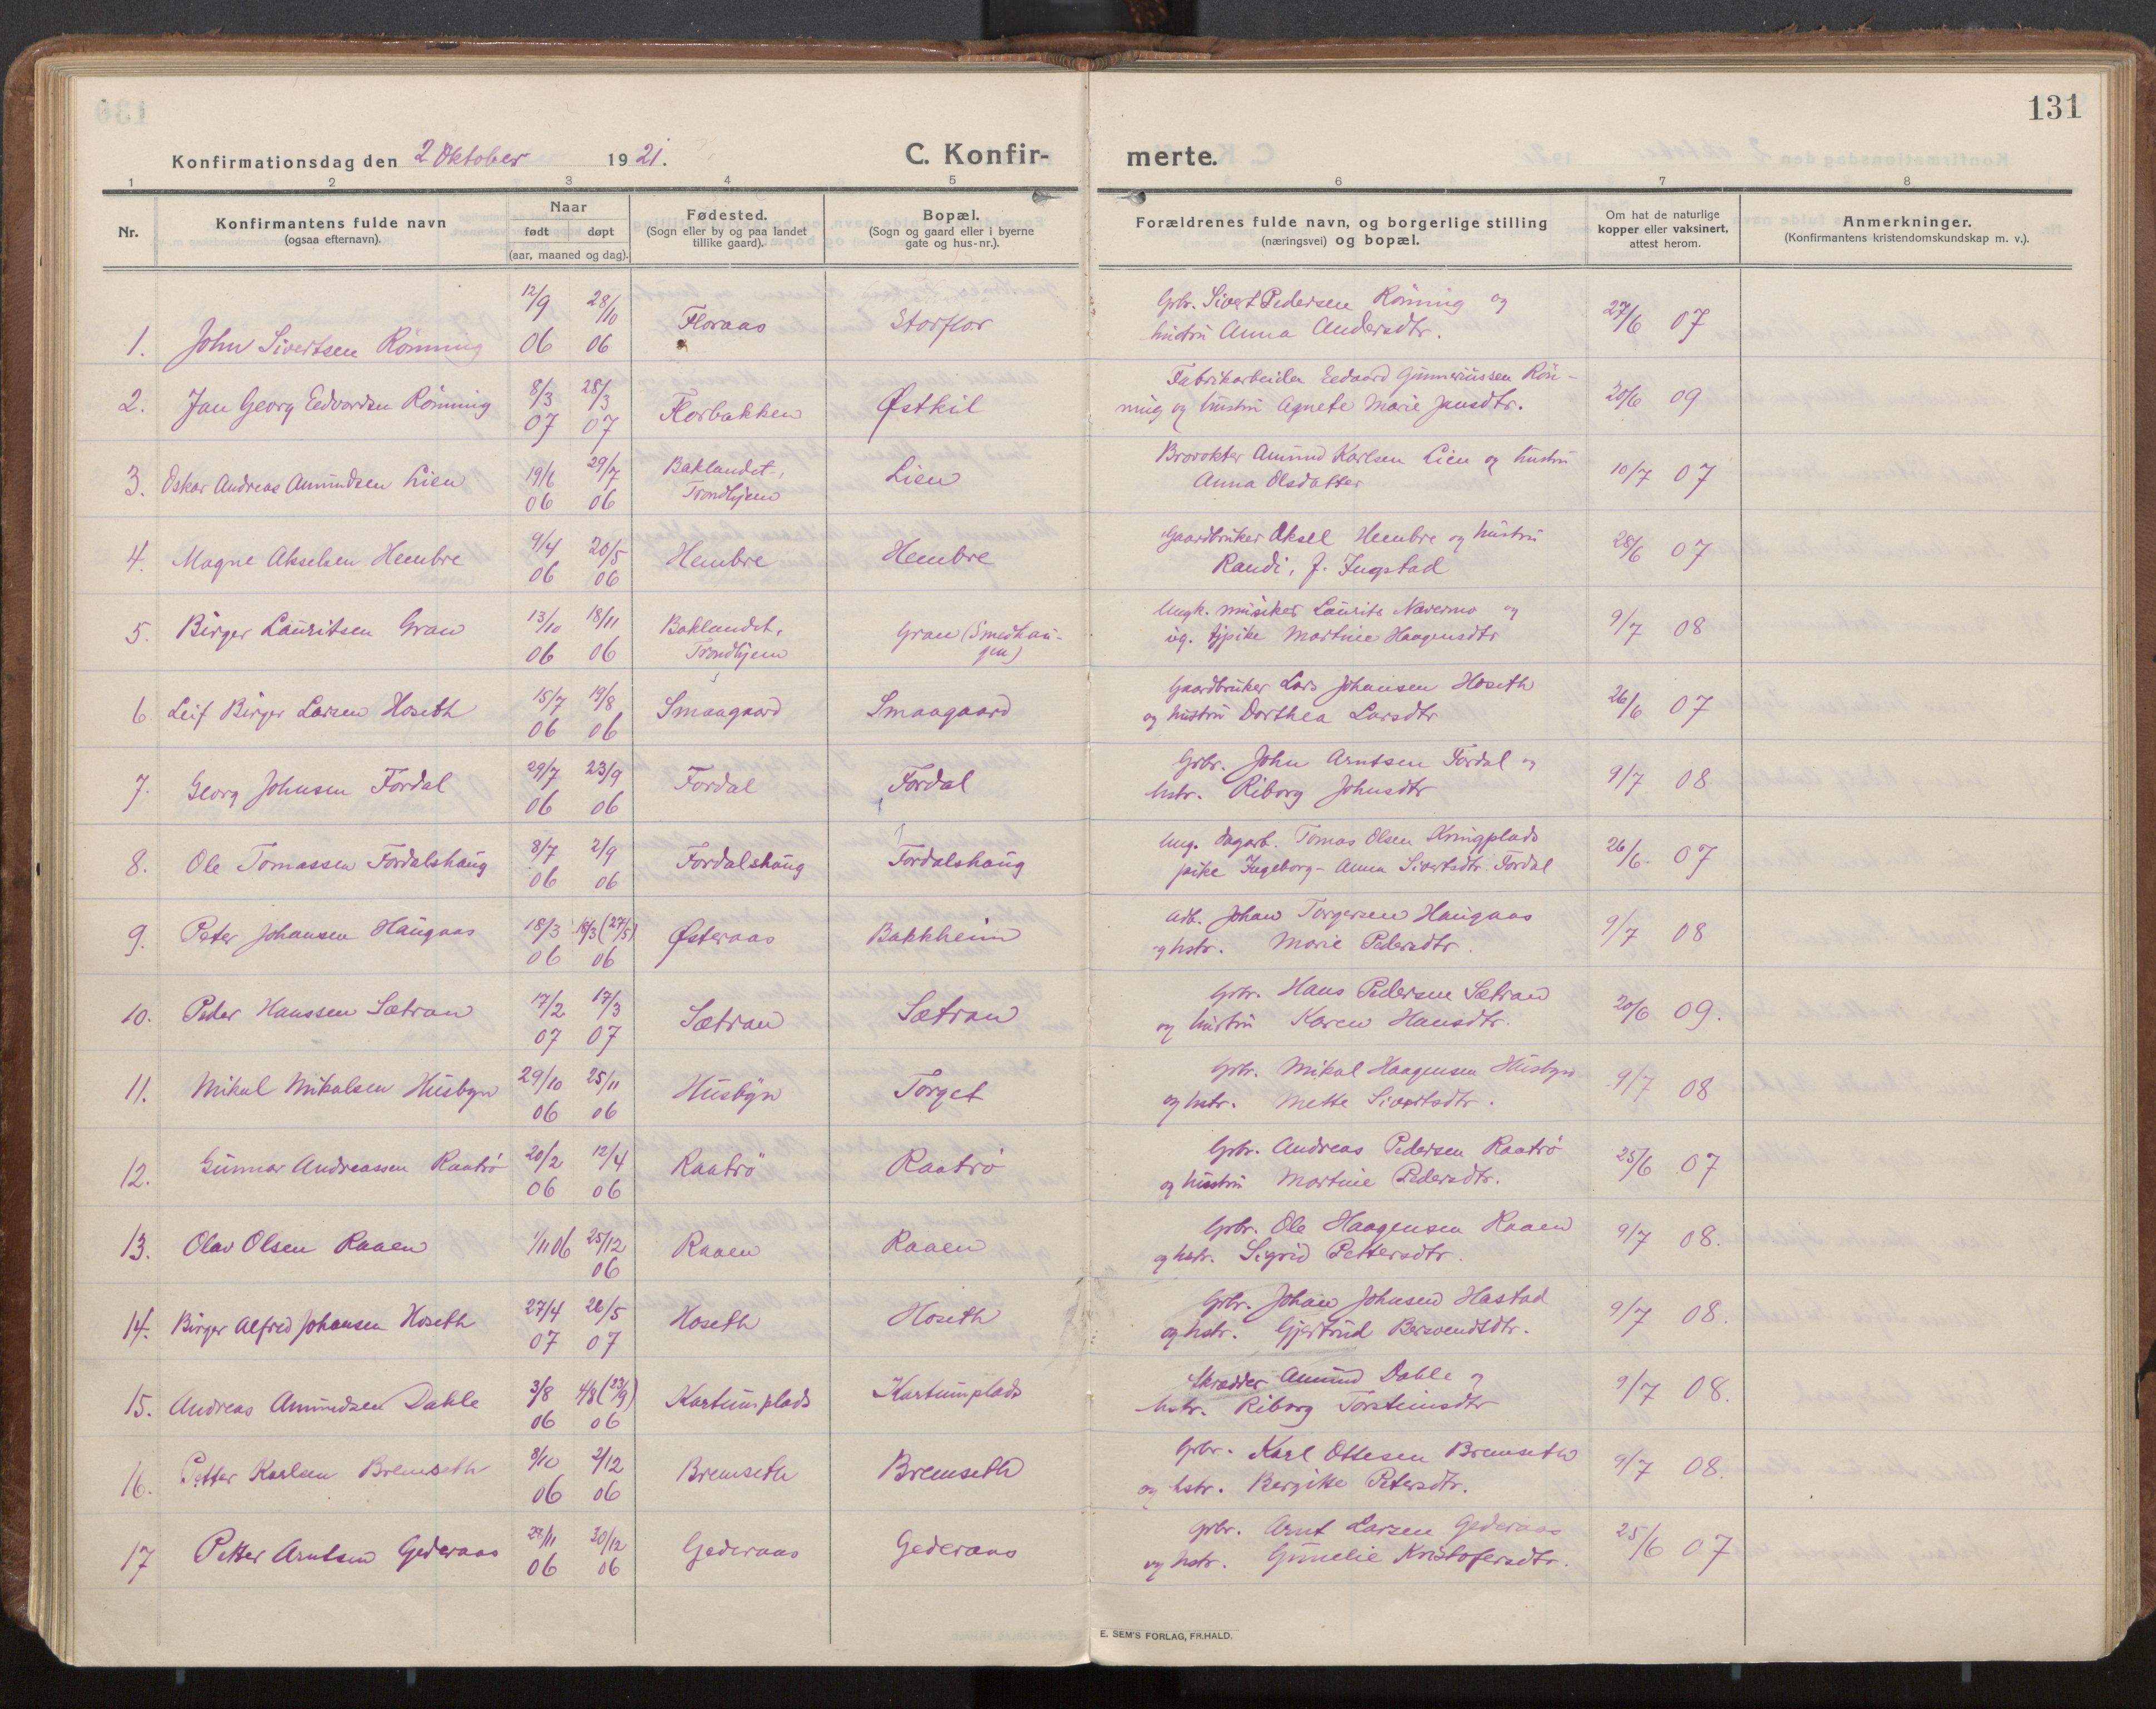 131
Konfirmationsdag den 2 Oktober 1921. C. Konfir- merte.
1 2 3 4 5 6 7 8
Nr. Konfirmantens fulde navn (ogsaa efternavn). Naar født døpt (aar, maaned og dag). Fødested. (Sogn eller by og paa landet tillike gaard). Bopæl. (Sogn og gaard eller i byerne gate og hus-nr.). Forældrenes fulde navn, og borgerlige stilling (næringsvei) og bopæl. Om hat de naturlige kopper eller vaksinert, attest herom. Anmerkninger. (Konfirmantens kristendomskundskap m. v.).
1. John Sivertsen Rönning 12/9 06 28/10 06 Floraas Storflor Grbr. Sivert Pedersen Rönning og
hustru Anna Andersdtr. 27/6 07
2. Jan Georg Edvardsen Rönning 8/3 07 28/3 07 Florbakken Østkil Fabrikarbeider Edvard Gunneriussen Rön-
ning og hustru Agnete Marie Jansdtr. 20/6 09
3. Oskar Andreas Amundsen Lien 19/6 06 29/7 06 Baklandet, Trondhjem Lien Brovokter Amund Karlsen Lien og hustru
Anna Olsdatter 10/7 07
4. Magne Akselsen Hembre 9/4 06 20/5 06 Hembre Hembre Gaardbruker Aksel Hembre og hustru
Randi, f. Ingstad 28/6 07
5. Birger Lauritsen Gran 13/10 06 18/11 06 Baklandet, Trondhjem Gran (Smedhau-
gen) Ungk. musiker Laurits Nævermo og
ug. tjpike Martine Haagensdtr 9/7 08
6. Leif Birger Larsen Hoseth 15/7 06 19/8 06 Smaagaard Smaagaard Gaardbruker Lars Johansen Hoseth
og hustru Dorthea Larsdtr 26/6 07
7. Georg Johnsen Fordal 29/7 06 23/9 06 Fordal Fordal Grbr. John Arntsen Fordal og
hstr. Riborg Johnsdtr 9/7 08
8. Ole Tomassen Fordalshaug 8/7 06 2/9 06 Fordalshaug Fordalshaug Ung. dagarb. Tomas Olsen Kringplads
pike Ingeborg-Anna Sivertsdtr. Fordal 26/6 07
9. Peter Johansen Haugaas 18/3 06 18/3 (27/5) 06 Østeraas Bakkheim Arb. Johan Torgersen Haugaas
og hstr. Marie Pedersdtr. 9/7 08
10. Peder Hanssen Sætran 17/2 07 17/3 07 Sætran Sætran Grbr. Hans Pedersen Sætran
og hustru Karen Hansdtr. 20/6 09.
11. Mikal Mikalsen Husbyn 29/10 06 25/11 06 Husbyn Torget Grbr. Mikal Haagensen Husbyn
og hstr. Mette Sivertsdtr. 9/7 08
12. Gunnar Andreassen Raatrö 20/2 06 12/4 06 Raatrö Raatrö Grbr. Andreas Pedersen Raatrö
og hustru Martine Pedersdtr. 25/6 07
13. Olav Olsen Raaen 1/11 06 25/12 06 Raaen Raaen Grbr. Ole Haagensen Raaen
og hstr. Sigrid Pettersdtr. 9/7 08.
14. Birger Alfred Johansen Hoseth 27/4 07 26/5 07 Hoseth Hoseth Grbr. Johan Johnsen Hastad
og hstr. Gjertrud Bersvendsdtr. 9/7 08.
15. Andreas Amundsen Dahle 3/8 06 4/8 (23/9) 06 Kartumplads Kartumplads Skrædder Amund Dahle og
hstr. Riborg Torsteinsdtr 9/7 08.
16. Petter Karlsen Bremseth 8/10 06 2/12 06 Bremseth Bremseth Grbr. Karl Ottesen Bremseth
og hstr. Bergitte Petersdtr. 9/7 08.
17 Petter Arntsen Gederaas 28/11 06 30/12 06 Gederaas Gederaas Grbr. Arnt Larsen Gederaas
og hstr. Gunelie Kristofersdtr. 25/6 07
E. SEM'S FORLAG, FR.HALD.